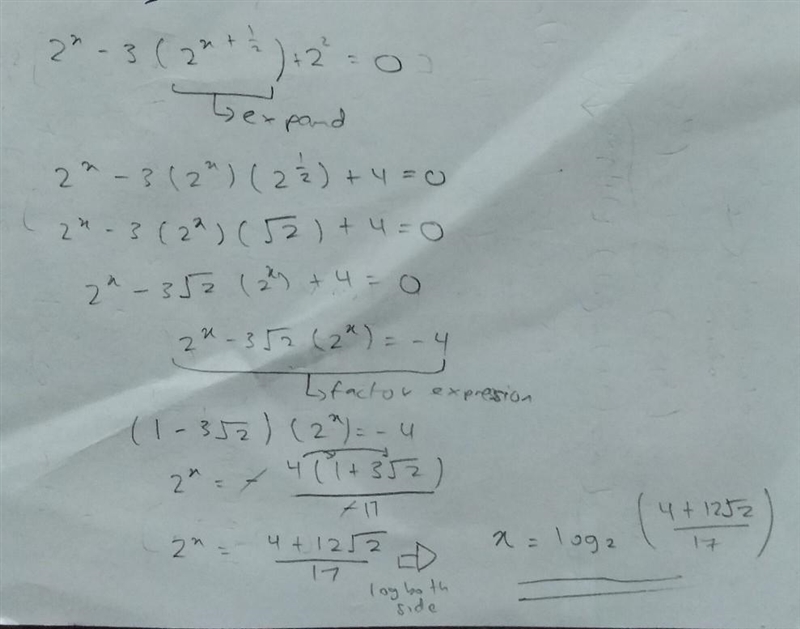 2^x - 3 (2^{x + 1/2}) + 2^2 = 0
↳ expand
2^x - 3 (2^x) (2^{1/2}) + 4 = 0
2^x - 3 (2^x) (√2) + 4 = 0
2^x - 3√2 (2^x) + 4 = 0
2^x - 3√2 (2^x) = - 4
↳ factor expresion
(1 - 3√2) (2^x) = - 4
2^x = - 4(1 + 3√2) / -17
2^x = 4 + 12√2 / 17 ⇨ x = log₂ (4 + 12√2 / 17)
log both
side